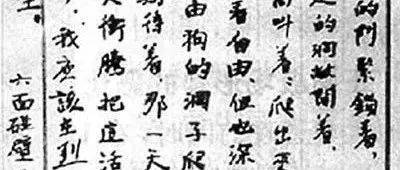 的门紧锁着，
的洞敞開着．
叫着：爬出来
着自由，但也深
由狗的洞子爬
待着，那一天
火衝腾把這活
，我應該在烈
生。 六面碰壁